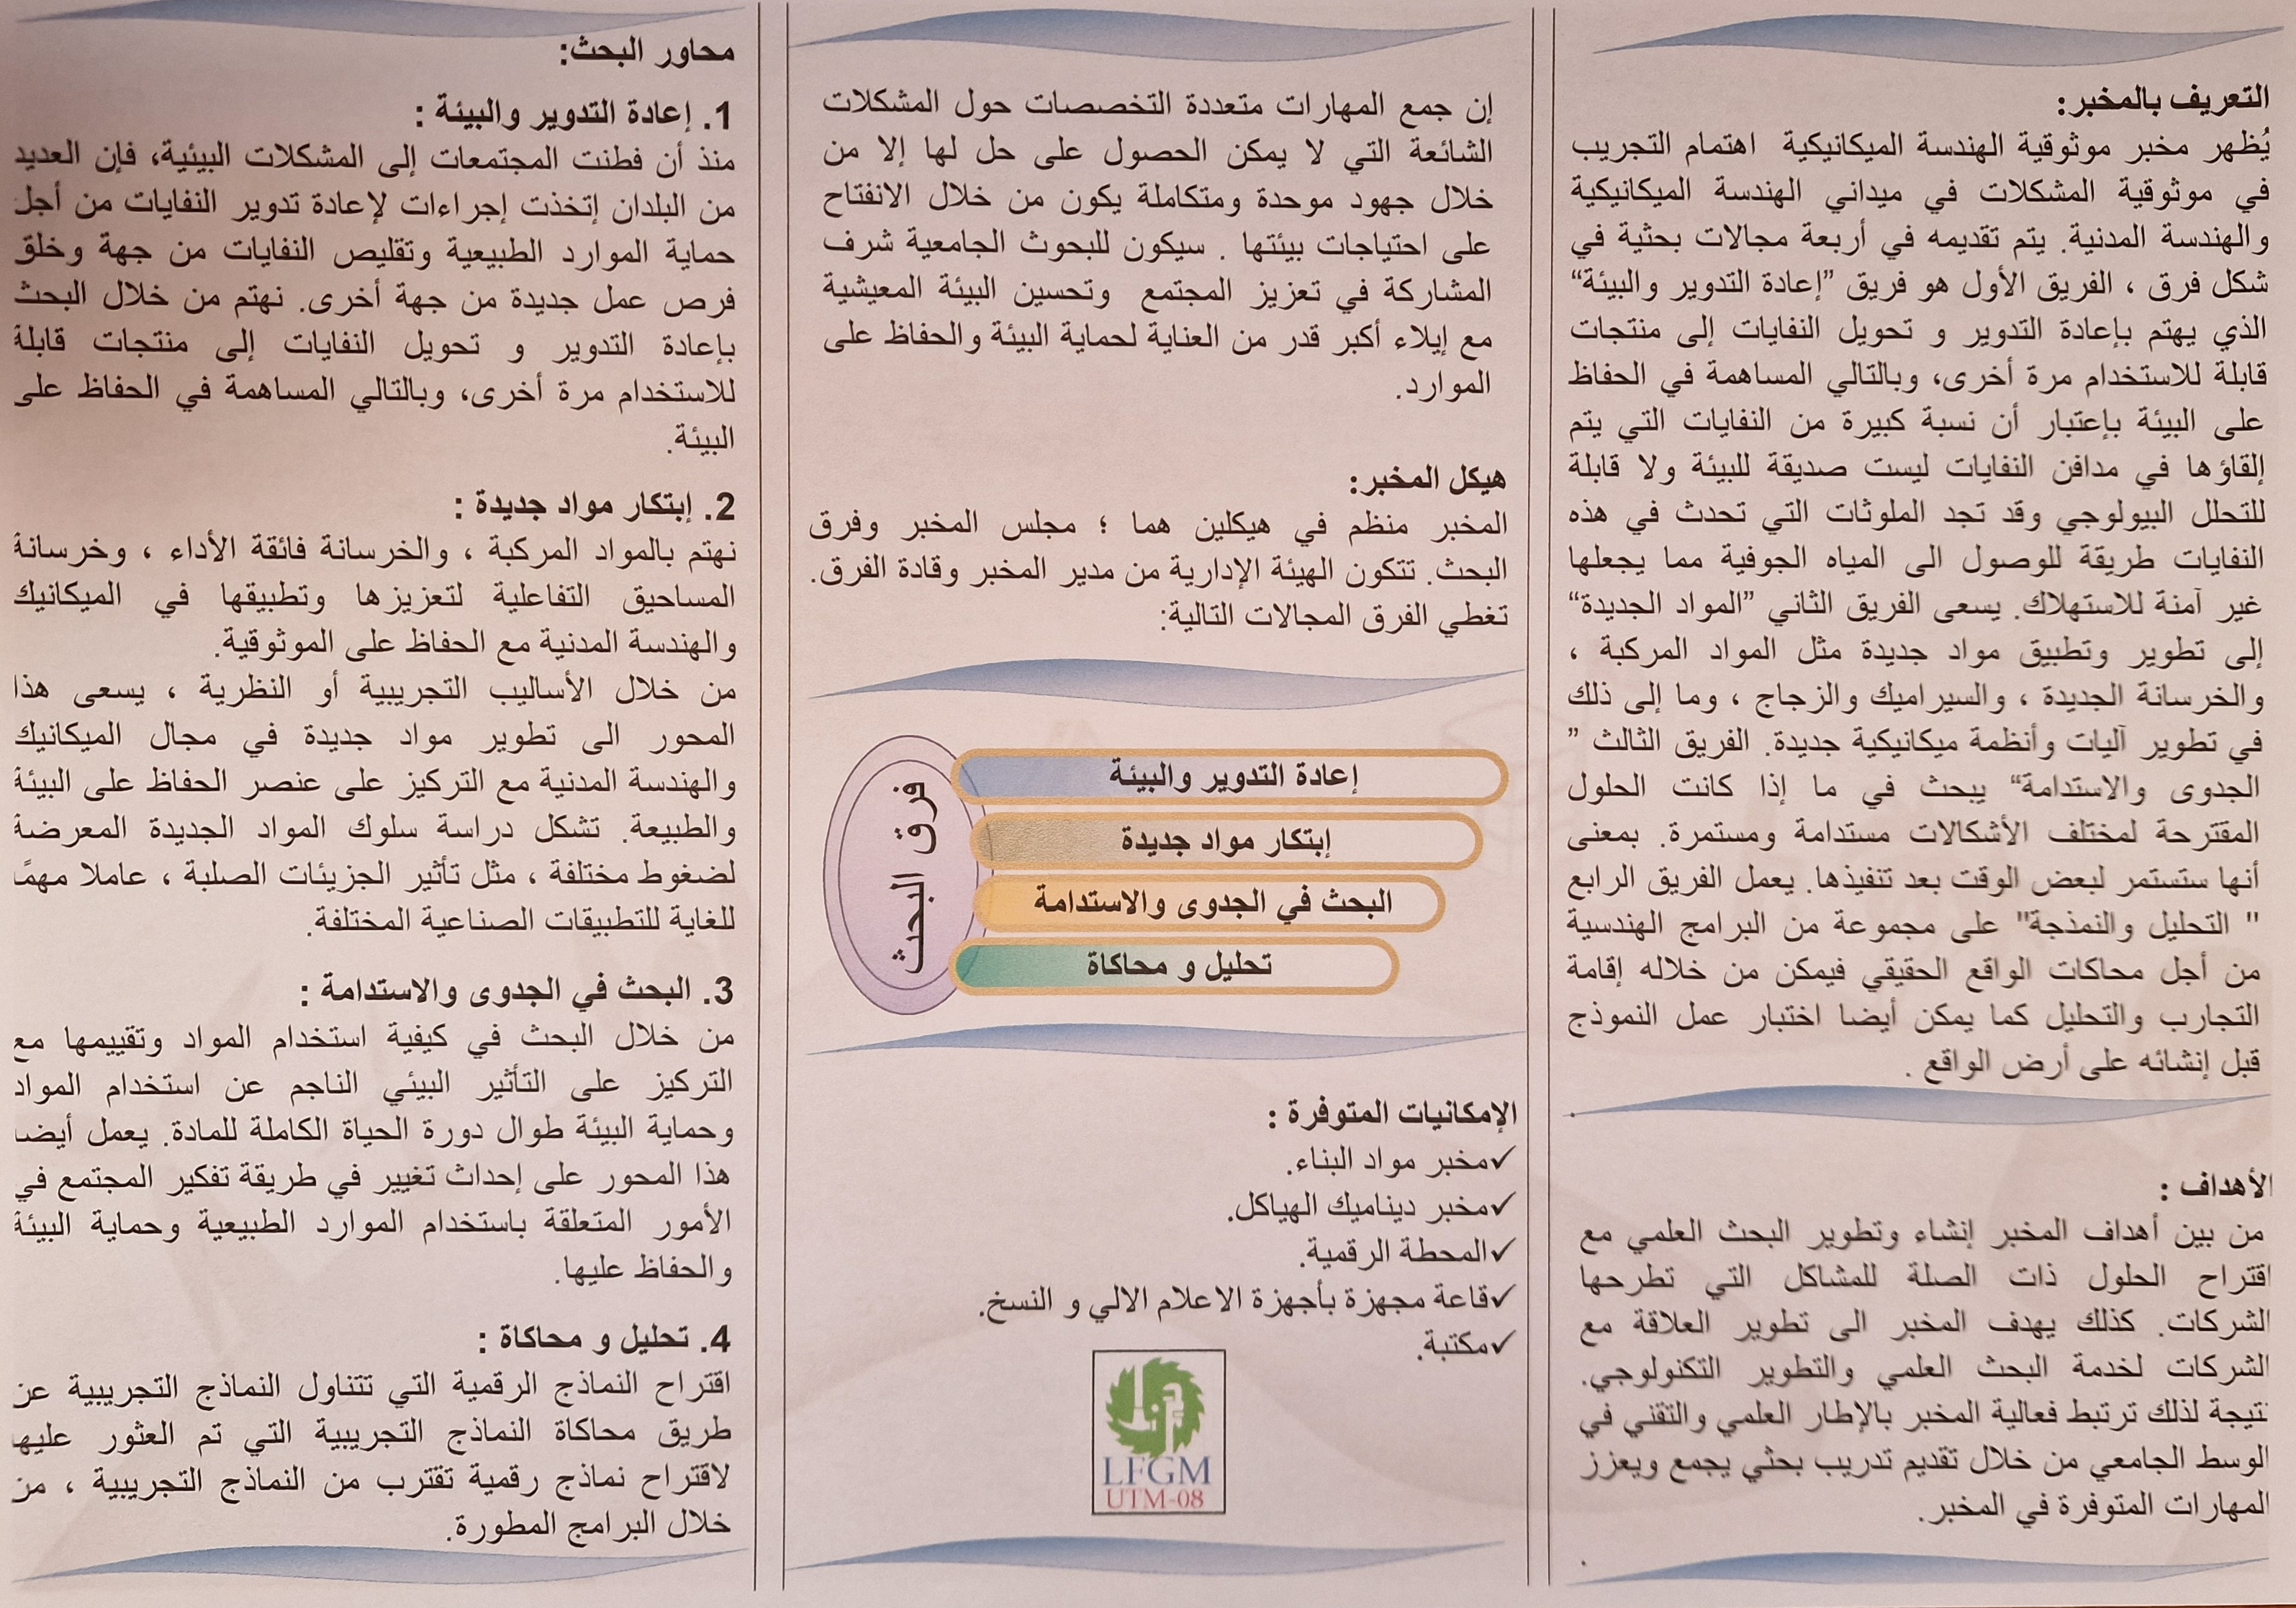 التعريف بالمخبر:
يُظهر مخبر موثوقية الهندسة الميكانيكية اهتمام التجريب
في موثوقية المشكلات في ميداني الهندسة الميكانيكية
والهندسة المدنية. يتم تقديمه في أربعة مجالات بحثية في
شكل فرق ، الفريق الأول هو فريق ”إعادة التدوير والبيئة“
الذي يهتم بإعادة التدوير و تحويل النفايات إلى منتجات
قابلة للاستخدام مرة أخرى، وبالتالي المساهمة في الحفاظ
على البيئة بإعتبار أن نسبة كبيرة من النفايات التي يتم
إلقاؤها في مدافن النفايات ليست صديقة للبيئة ولا قابلة
للتحلل البيولوجي وقد تجد الملوثات التي تحدث في هذه
النفايات طريقة للوصول الى المياه الجوفية مما يجعلها
غير آمنة للاستهلاك. يسعى الفريق الثاني ”المواد الجديدة“
إلى تطوير وتطبيق مواد جديدة مثل المواد المركبة ،
والخرسانة الجديدة ، والسيراميك والزجاج ، وما إلى ذلك
في تطوير آليات وأنظمة ميكانيكية جديدة. الفريق الثالث ”
الجدوى والاستدامة“ يبحث في ما إذا كانت الحلول
المقترحة لمختلف الأشكالات مستدامة ومستمرة. بمعنى
أنها ستستمر لبعض الوقت بعد تنفيذها. يعمل الفريق الرابع
" التحليل والنمذجة" على مجموعة من البرامج الهندسية
من أجل محاكات الواقع الحقيقي فيمكن من خلاله إقامة
التجارب والتحليل كما يمكن أيضا اختبار عمل النموذج
قبل إنشائه على أرض الواقع .
الأهداف :
من بين أهداف المخبر إنشاء وتطوير البحث العلمي مع
اقتراح الحلول ذات الصلة للمشاكل التي تطرحها
الشركات. كذلك يهدف المخبر الى تطوير العلاقة مع
الشركات لخدمة البحث العلمي والتطوير التكنولوجي.
نتيجة لذلك ترتبط فعالية المخبر بالإطار العلمي والتقني في
الوسط الجامعي من خلال تقديم تدريب بحثي يجمع ويعزز
المهارات المتوفرة في المخبر.
إن جمع المهارات متعددة التخصصات حول المشكلات
الشائعة التي لا يمكن الحصول على حل لها إلا من
خلال جهود موحدة ومتكاملة يكون من خلال الانفتاح
على احتياجات بيئتها . سيكون للبحوث الجامعية شرف
المشاركة في تعزيز المجتمع وتحسين البيئة المعيشية
مع إيلاء أكبر قدر من العناية لحماية البيئة والحفاظ على
الموارد.
هيكل المخبر:
المخبر منظم في هيكلين هما ؛ مجلس المخبر وفرق
البحث. تتكون الهيئة الإدارية من مدير المخبر وقادة الفرق.
تغطي الفرق المجالات التالية:
فرق البحث
إعادة التدوير والبيئة
إبتكار مواد جديدة
البحث في الجدوى والاستدامة
تحليل و محاكاة
الإمكانيات المتوفرة :
✓مخبر مواد البناء.
✓مخبر ديناميك الهياكل.
✓المحطة الرقمية.
✓قاعة مجهزة بأجهزة الاعلام الالي و النسخ.
✓مكتبة.
LFGM
UTM-08
محاور البحث:
1. إعادة التدوير والبيئة :
منذ أن فطنت المجتمعات إلى المشكلات البيئية، فإن العديد
من البلدان إتخذت إجراءات لإعادة تدوير النفايات من أجل
حماية الموارد الطبيعية وتقليص النفايات من جهة وخلق
فرص عمل جديدة من جهة أخرى. نهتم من خلال البحث
بإعادة التدوير و تحويل النفايات إلى منتجات قابلة
للاستخدام مرة أخرى، وبالتالي المساهمة في الحفاظ على
البيئة.
2. إبتكار مواد جديدة :
نهتم بالمواد المركبة ، والخرسانة فائقة الأداء ، وخرسانة
المساحيق التفاعلية لتعزيزها وتطبيقها في الميكانيك
والهندسة المدنية مع الحفاظ على الموثوقية.
من خلال الأساليب التجريبية أو النظرية ، يسعى هذا
المحور الى تطوير مواد جديدة في مجال الميكانيك
والهندسة المدنية مع التركيز على عنصر الحفاظ على البيئة
والطبيعة. تشكل دراسة سلوك المواد الجديدة المعرضة
لضغوط مختلفة ، مثل تأثير الجزيئات الصلبة ، عاملا مهمًا
للغاية للتطبيقات الصناعية المختلفة.
3. البحث في الجدوى والاستدامة :
من خلال البحث في كيفية استخدام المواد وتقييمها مع
التركيز على التأثير البيئي الناجم عن استخدام المواد
وحماية البيئة طوال دورة الحياة الكاملة للمادة. يعمل أيضا
هذا المحور على إحداث تغيير في طريقة تفكير المجتمع في
الأمور المتعلقة باستخدام الموارد الطبيعية وحماية البيئة
والحفاظ عليها.
4. تحليل و محاكاة :
اقتراح النماذج الرقمية التي تتناول النماذج التجريبية عن
طريق محاكاة النماذج التجريبية التي تم العثور عليها
لاقتراح نماذج رقمية تقترب من النماذج التجريبية ، من
خلال البرامج المطورة.